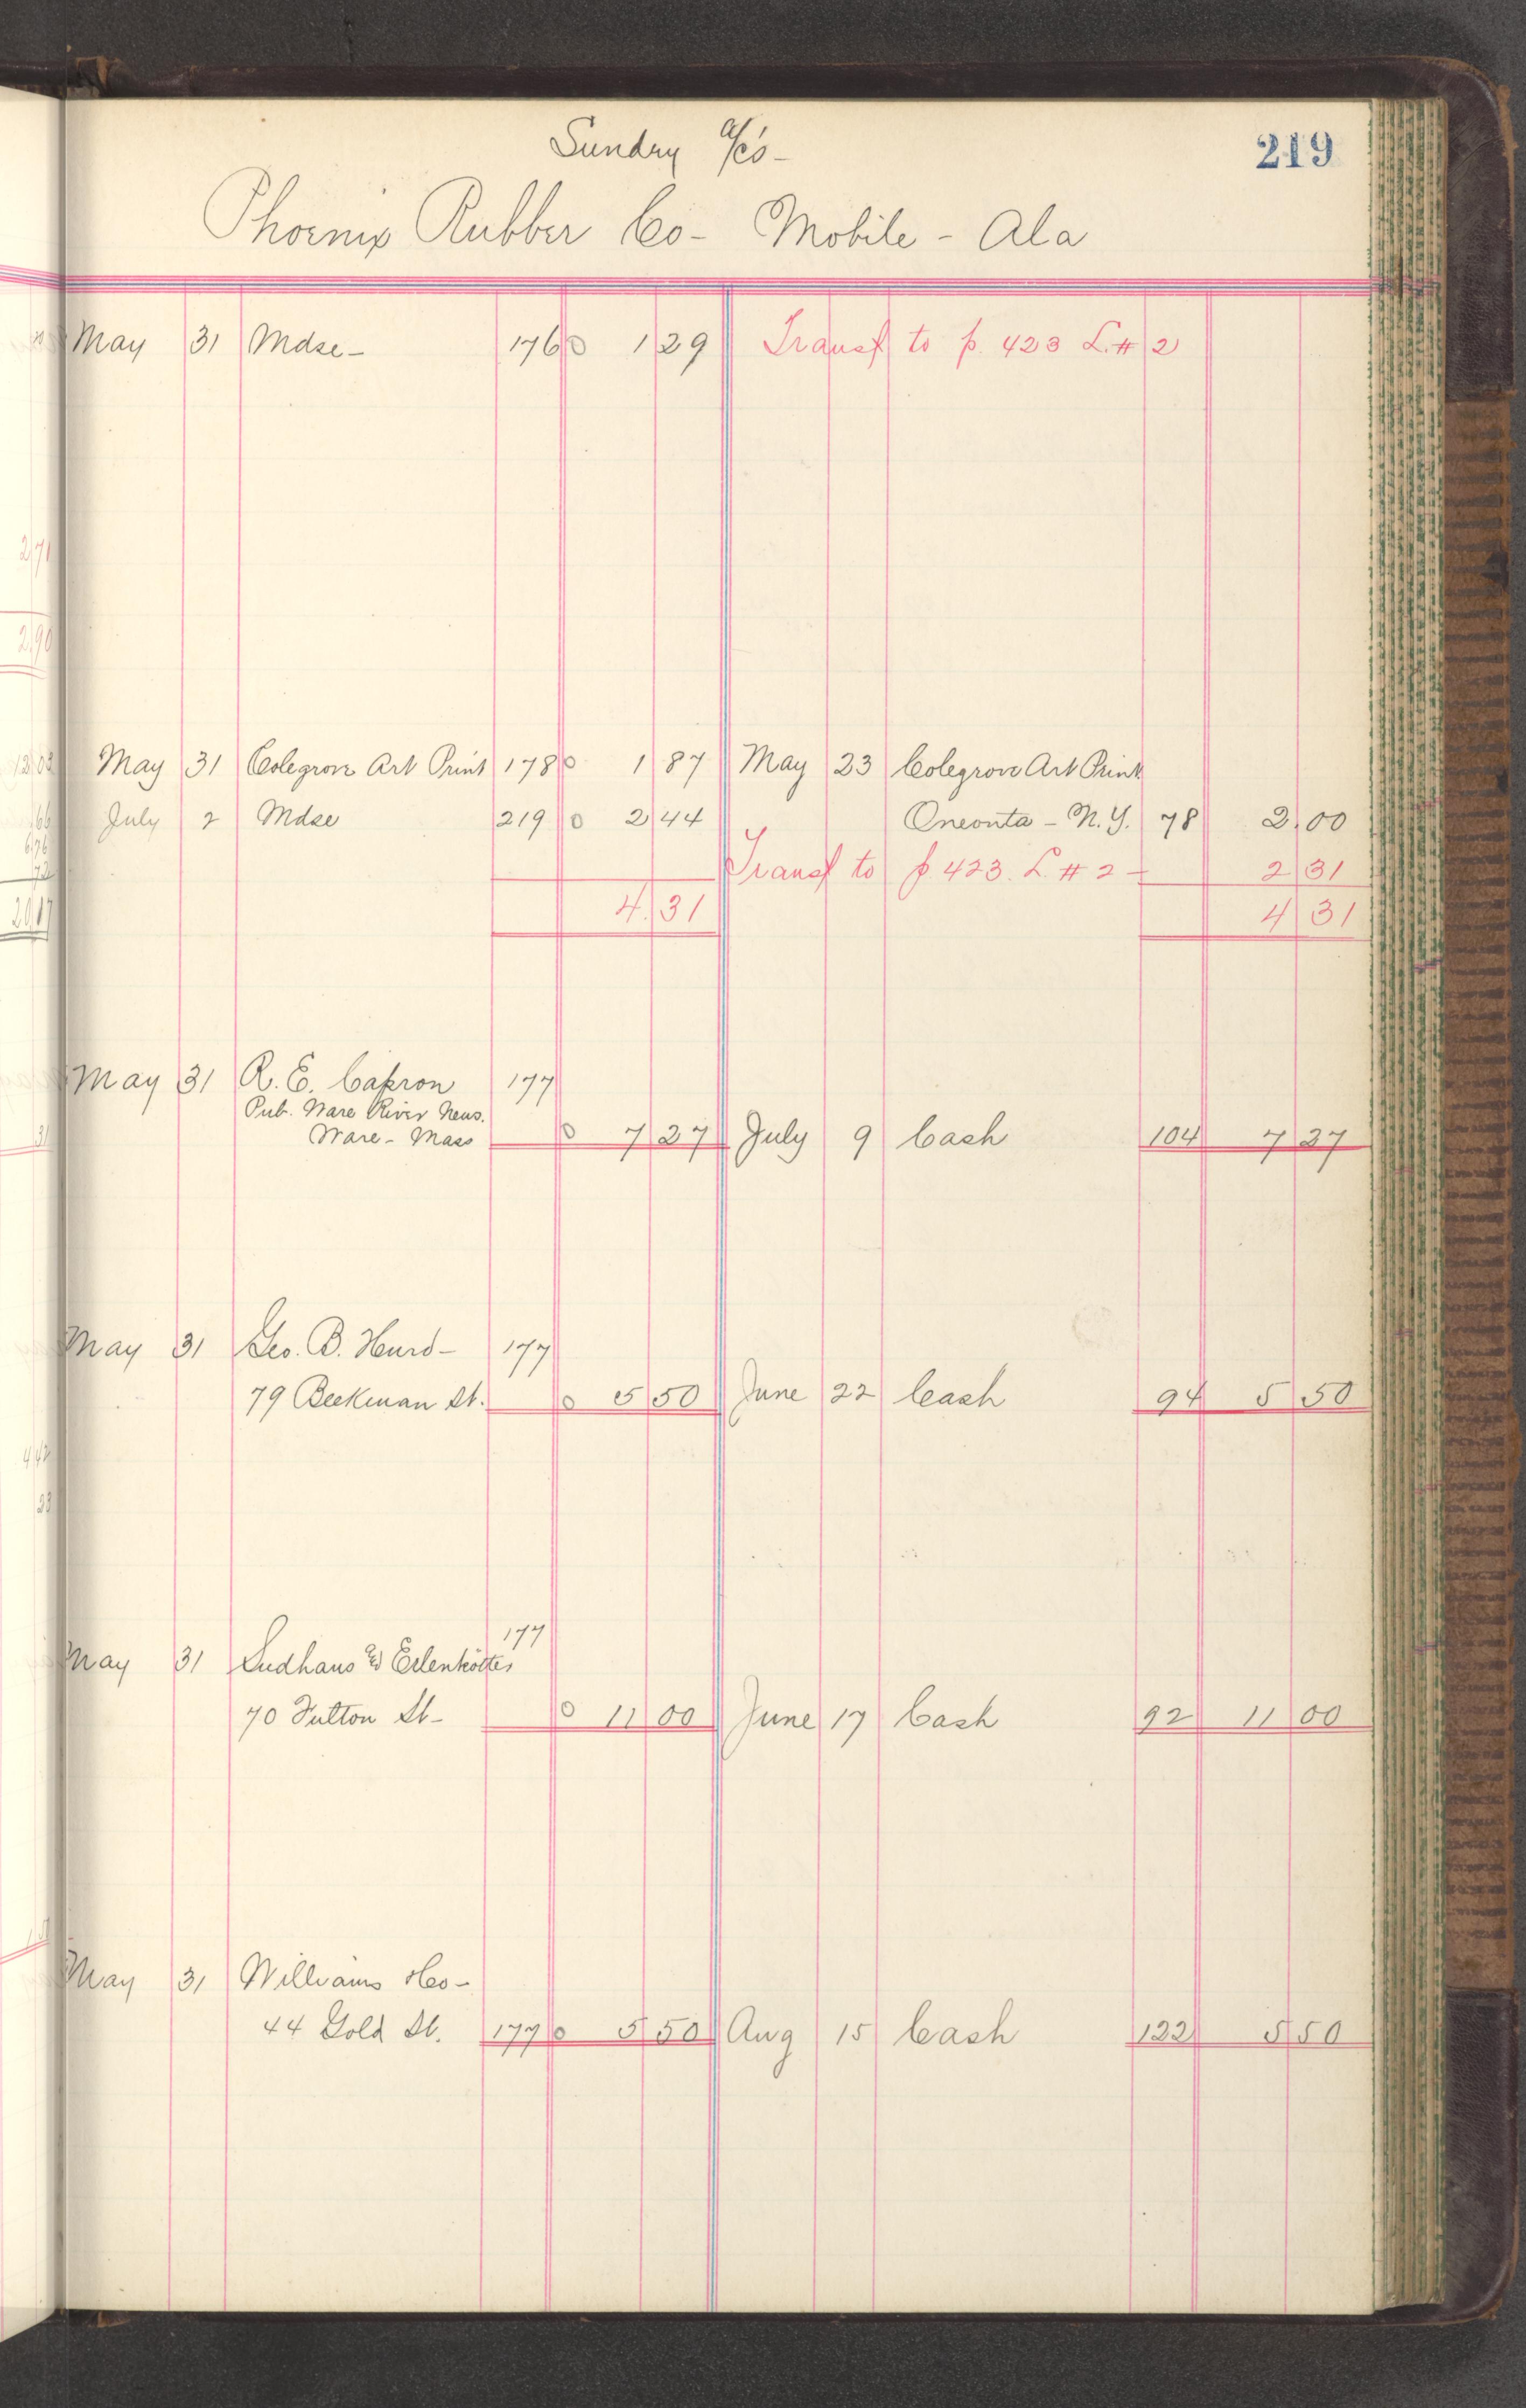 Sundry a/c's -
219
Phoenix Rubber Co - Mobile - Ala
May 31 Mdse - 176 0 1 29 Transf to p. 423 L. # 2
May 31 Colegrove Art Print 178 0 1 87 May 23 Colegrove Art Print
July 2 Mdse 219 0 2 44 Oneonta - N.Y. 78 2.00
Transf to p 423. L # 2 - 2 31
4.31 4 31
May 31 R. E. Capron 177
Pub. Ware River News.
Ware - Mass 0 7 27 July 9 Cash 104 7 27
May 31 Geo. B. Hurd - 177
79 Beekman St. 0 5 50 June 22 Cash 94 5 50
177
May 31 Sudhaus & Erlenkötter
70 Fulton St - 0 11 00 June 17 Cash 92 11 00
May 31 Williams & Co -
44 Gold St. 177 0 5 50 Aug 15 Cash 122 5 50